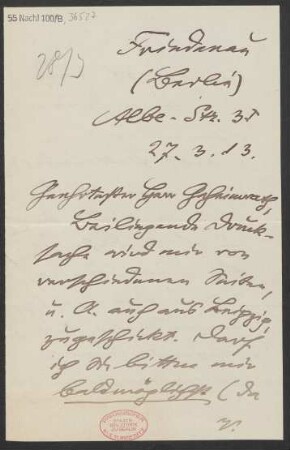 55 Nachl 100/B, 36527
28/3
Friedenau
(Berlin)
Albe-Str. 3I
27.3.13.
Geehrtester Herr Geheimrath,
Beiliegende Druck-
sache wird mir von
verschiedenen Seiten,
u. A. auch aus Leipzig,
zugeschickt. Darf
ich Sie bitten mir
baldmöglichst (da